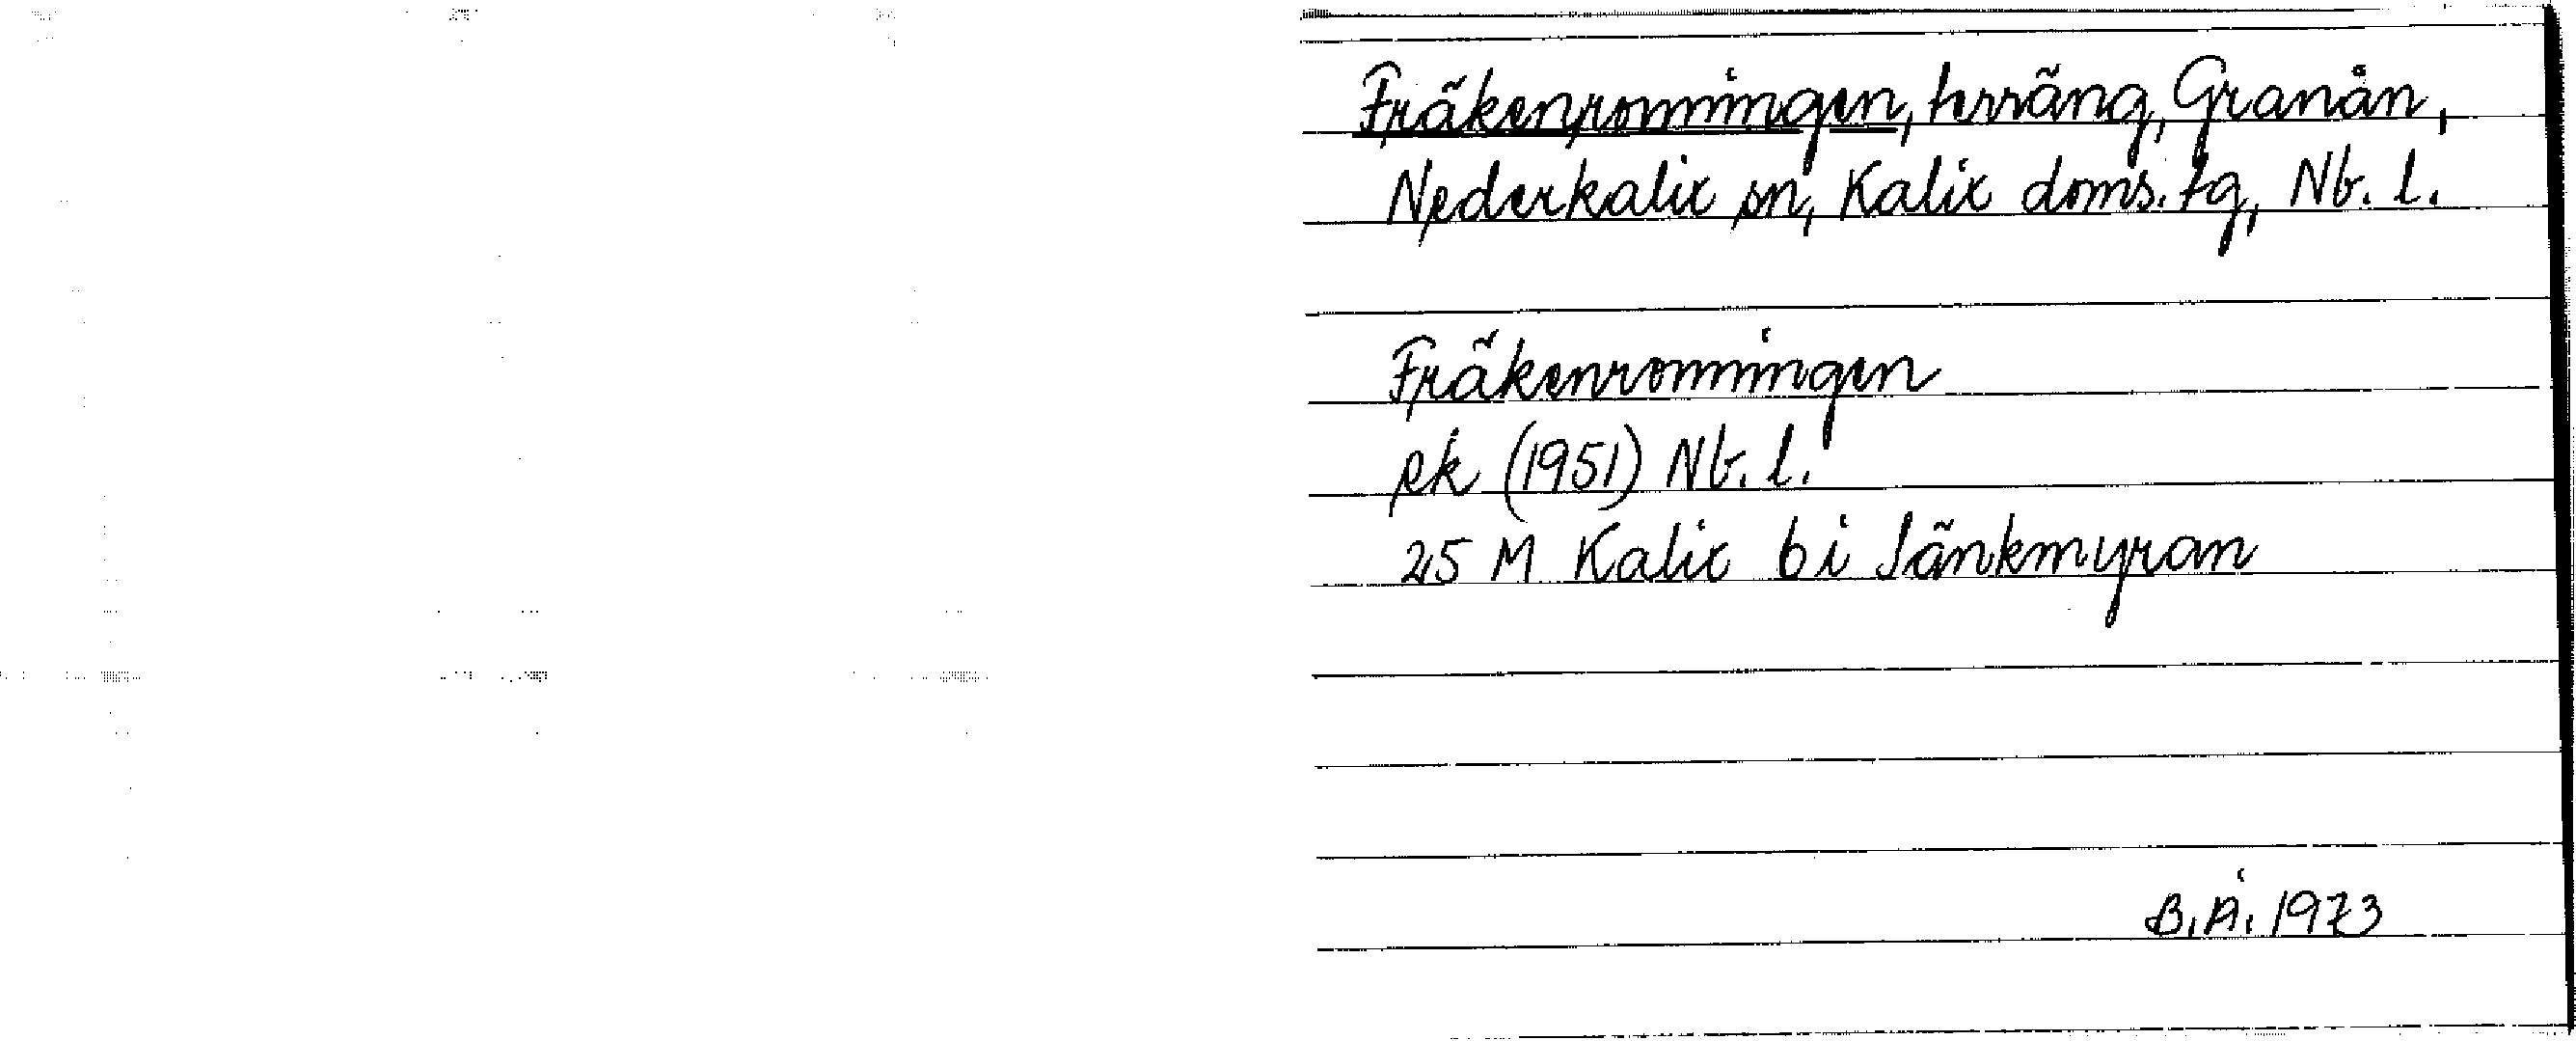 Fräkenromningen, terräng, Granån,
Nederkalix sn, Kalix doms. tg, Nb. l.
Fräkenromningen
ek (1951) Nb. l.
25 M Kalix 6 i Sänkmyran
B. Å. 1973